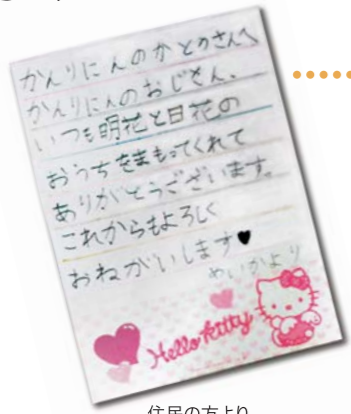 かんりにんのかとうさんへ
かんりにんのおじさん、
いつも明花と日花の
おうちをまもってくれて
ありがとうございます。
これからもよろしく
おねがいします♥
めいかより
Hello Kitty
住民の方より